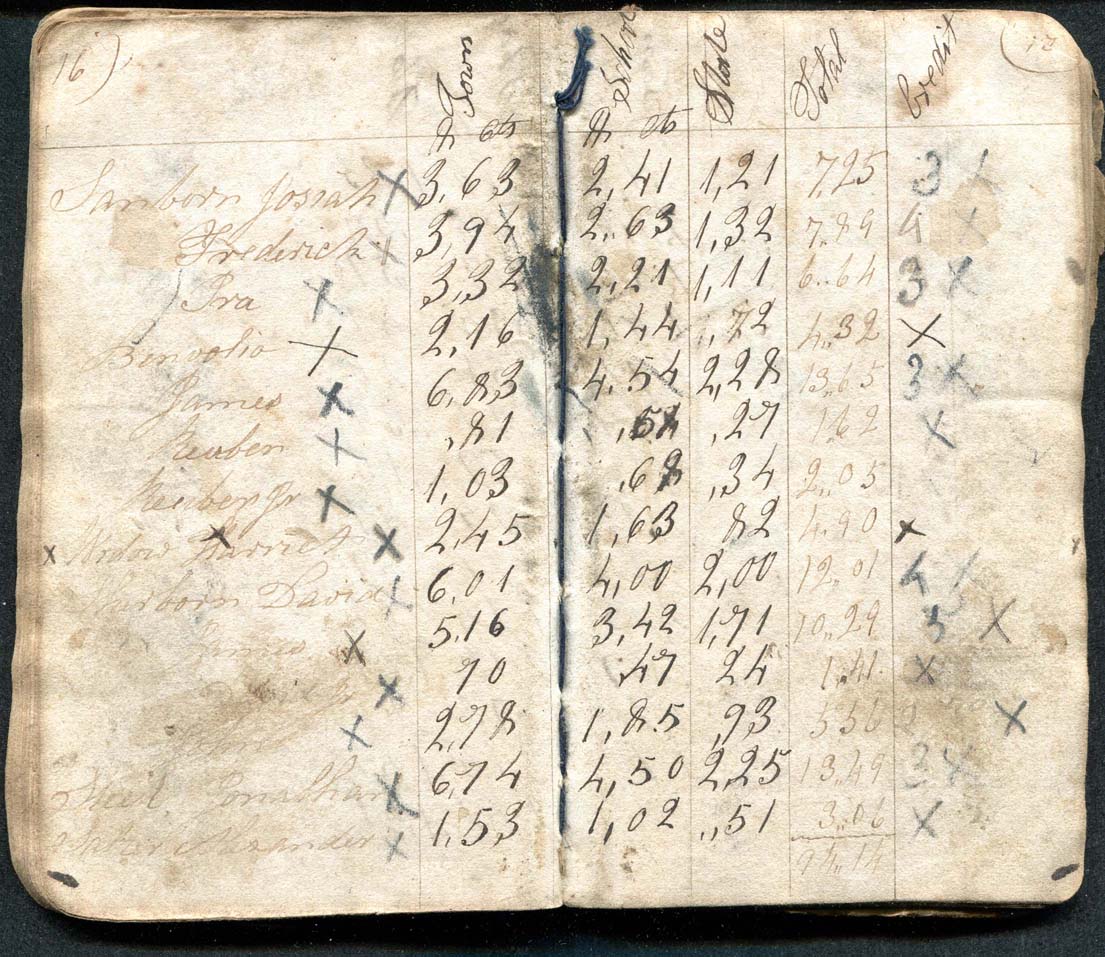 16) Town School State Total Credit
$ cts $ cts
Sanborn Josiah X 3,63 2,41 1,21 7,25 3 X
Frederick X 3,94 2,,63 1,32 7,,89 4 X
Ira X 3,32 2,21 1,11 6,,64 3 X
Benvolio X 2,16 1,44 ,,72 4,,32 X
James X 6,83 4,54 2,28 13,65 3 X
Reuben X ,81 ,54 ,27 1,62 X
Reuben Jr X 1,03 ,68 ,34 2,,05
X Harriet X 2,45 1,63 82 4,,90 X
David X 6,01 4,00 2,00 12,,01 4 X
James X 5,16 3,42 1,71 10,,29 3 X
X 70 ,47 24 1,,41 X
X 2,78 1,85 ,93 5 56 X
Jonathan X 6,74 4,50 2,25 13,,49 3 X
X 1,53 1,02 ,,51 3,,06 X
94,,14